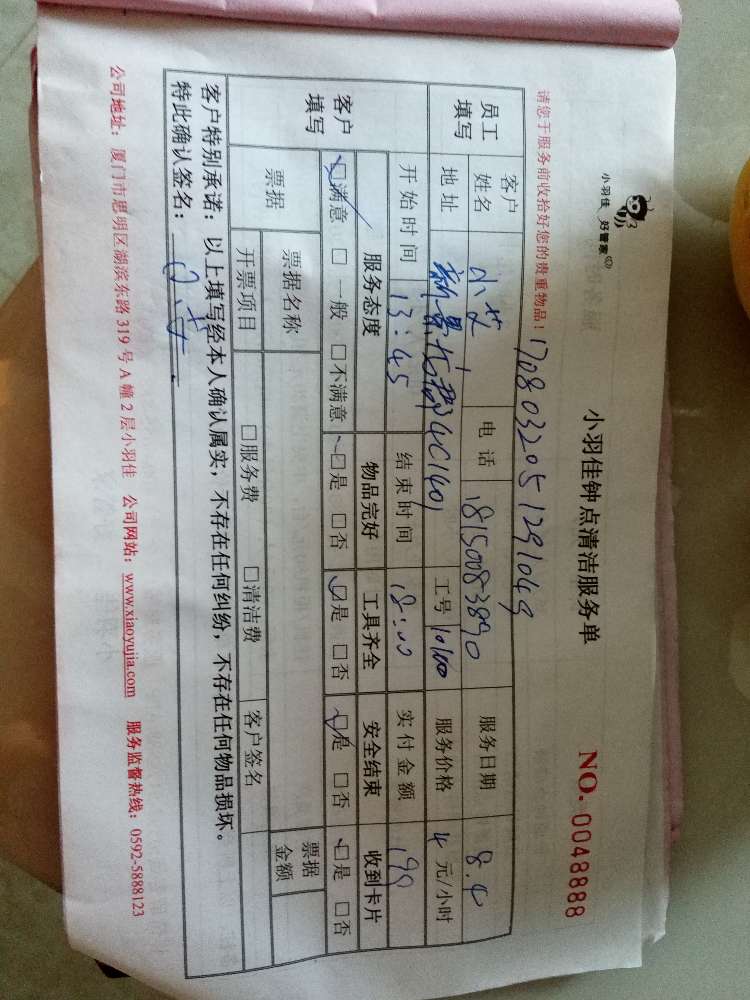 小羽佳 好管家
小羽佳钟点清洁服务单
NO. 0048888
请您于服务前收拾好您的贵重物品！ 1708032051291049
员工填写 客户姓名 小 电话 18150083890 服务日期 8.4
地址 新景 4C1401 工号 10160 服务价格 4 元/小时
客户填写 开始时间 13:45 结束时间 18:00 实付金额 199
服务态度 物品完好 工具齐全 安全结束 收到卡片
☑满意 □一般 □不满意 ☑是 □否 ☑是 □否 ☑是 □否 ☑是 □否
票据 票据名称 票据金额
开票项目 □服务费 □清洁费 客户签名
客户特别承诺：以上填写经本人确认属实，不存在任何纠纷，不存在任何物品损坏。
特此确认签名：
公司地址：厦门市思明区湖滨东路 319 号 A 幢 2 层小羽佳 公司网站：www.xiaoyujia.com 服务监督热线：0592-5888123